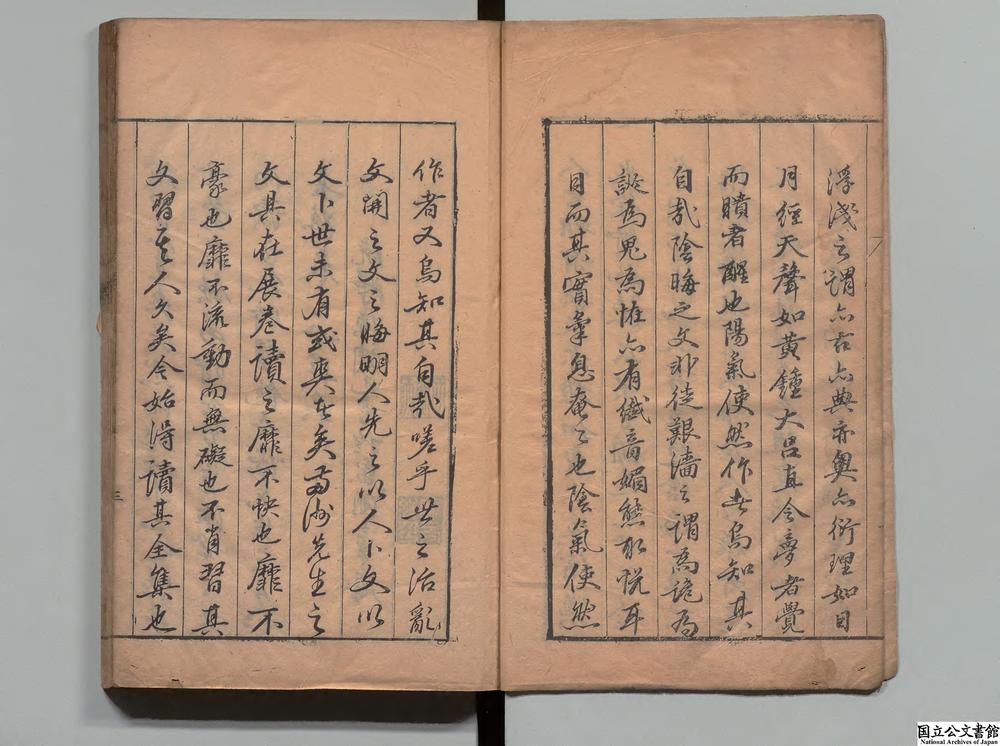 浮淺之謂亦古亦典亦奧亦衍理如日
月經天聲如黃鐘大呂直令夢者覺
而聵者醒也陽氣使然作者烏知其
自哉陰晦之文非徒艱濇之謂為詭為
誕為鬼為恠亦有纖音媚態取悅耳
目而其實氣息奄之也陰氣使然
作者又烏知其自哉嗟乎世之治亂
文開之文之晦明人先之以人卜文以
文卜世未有或爽者矣先生之
文具在展卷讀之靡不快也靡不
豪也靡不流動而無礙也不肖習其
文習其人久矣今始得讀其全集也
三
国立公文書館
National Archives of Japan